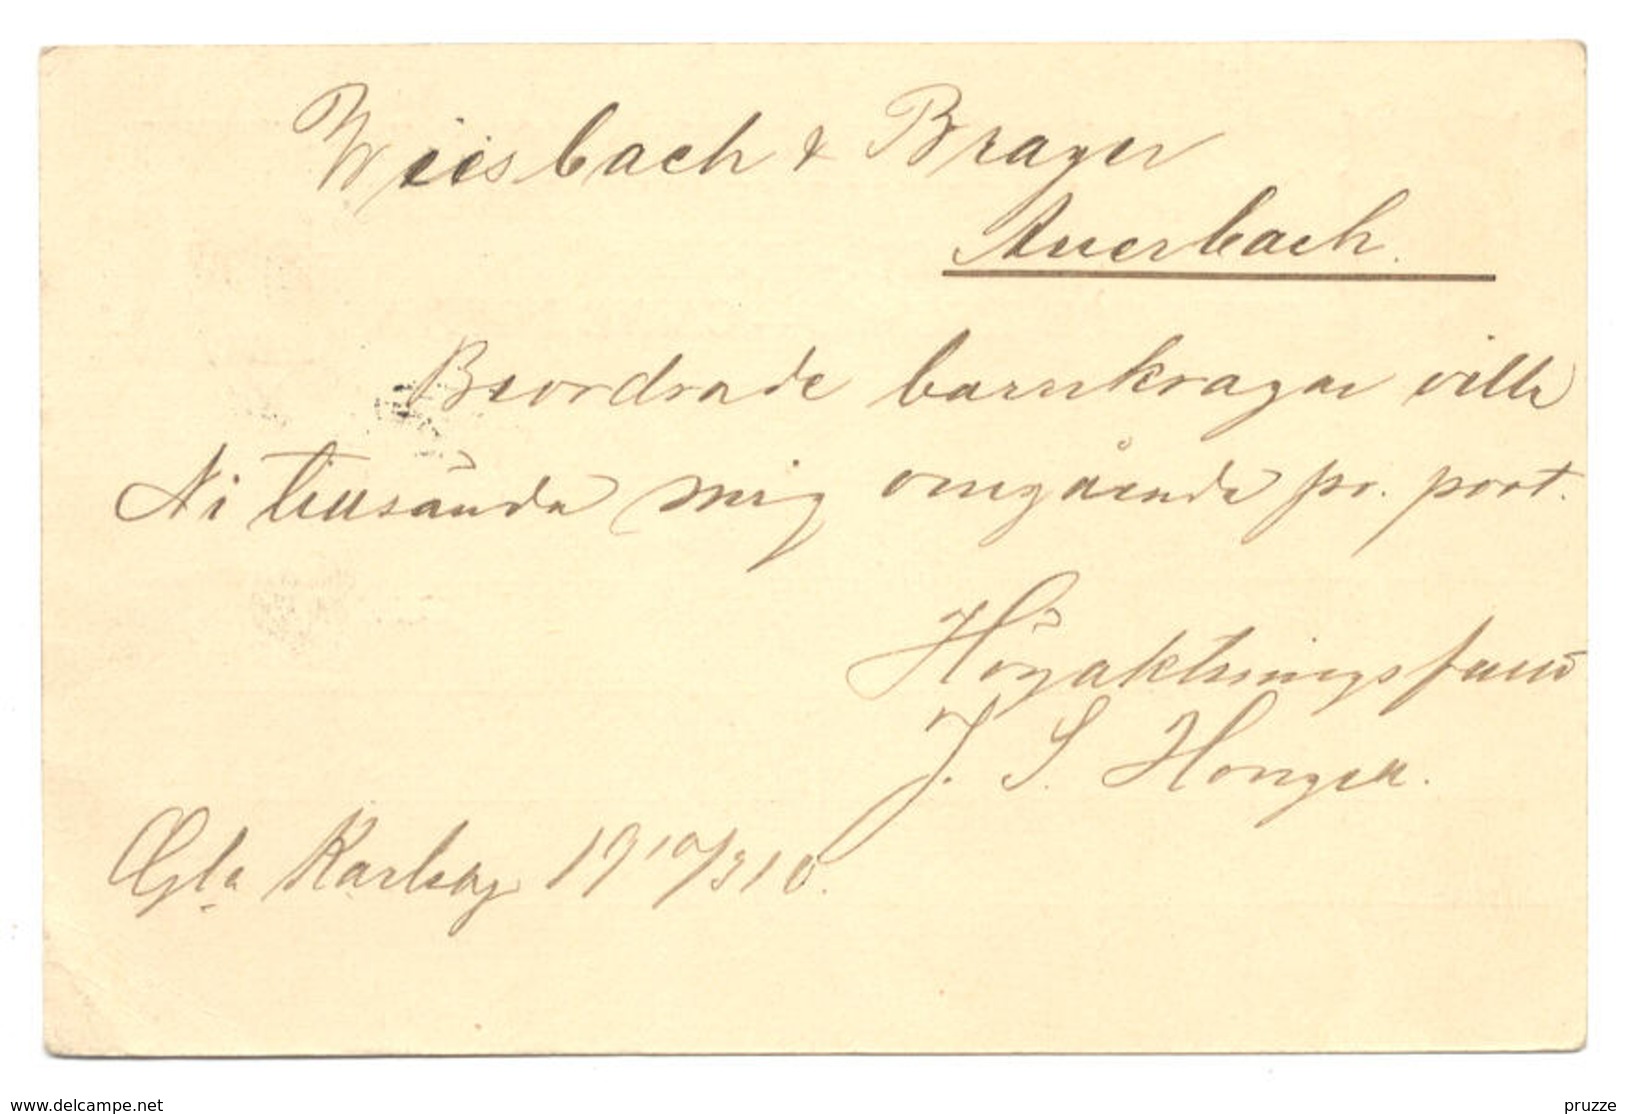 Weisbach & Brager
Auerbach.
Beordrade barnkragar ville
Ni tillsända mig omgående pr. post.
Högaktningsfullt
J. S. Honga.
Gla Karleby 19 10/3 10.
www.delcampe.net
pruzze